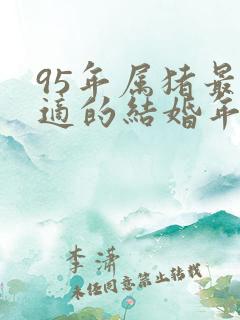 95年属猪最
適的結婚年
李潇
未经同意禁止转载